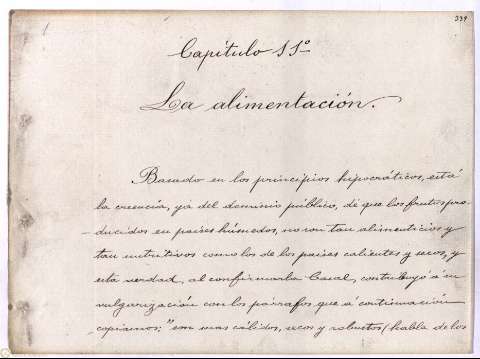 339
Capítulo 11º
La alimentación.
Basado en los principios hipocráticos, está
la creencia, ya del dominio público, de que los frutos pro-
ducidos en paises húmedos, no son tan alimenticios y
tan nutritivos como los de los paises calientes y secos, y
esta verdad, al confirmarla Casal, contribuyó á su
vulgarización con los párrafos que á continuación
copiamos: "son mas cálidos, secos y robustos (habla de los